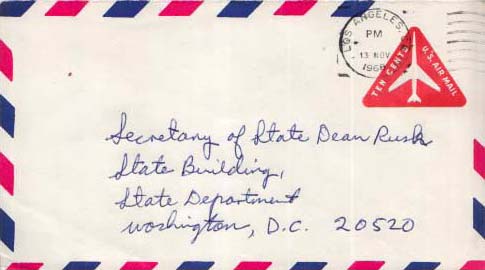 LOS ANGELES,
PM
13 NOV
1968
TEN CENTS
U.S. AIR MAIL
Secretary of State Dean Rusk
State Building,
State Department
Washington, D.C. 20520